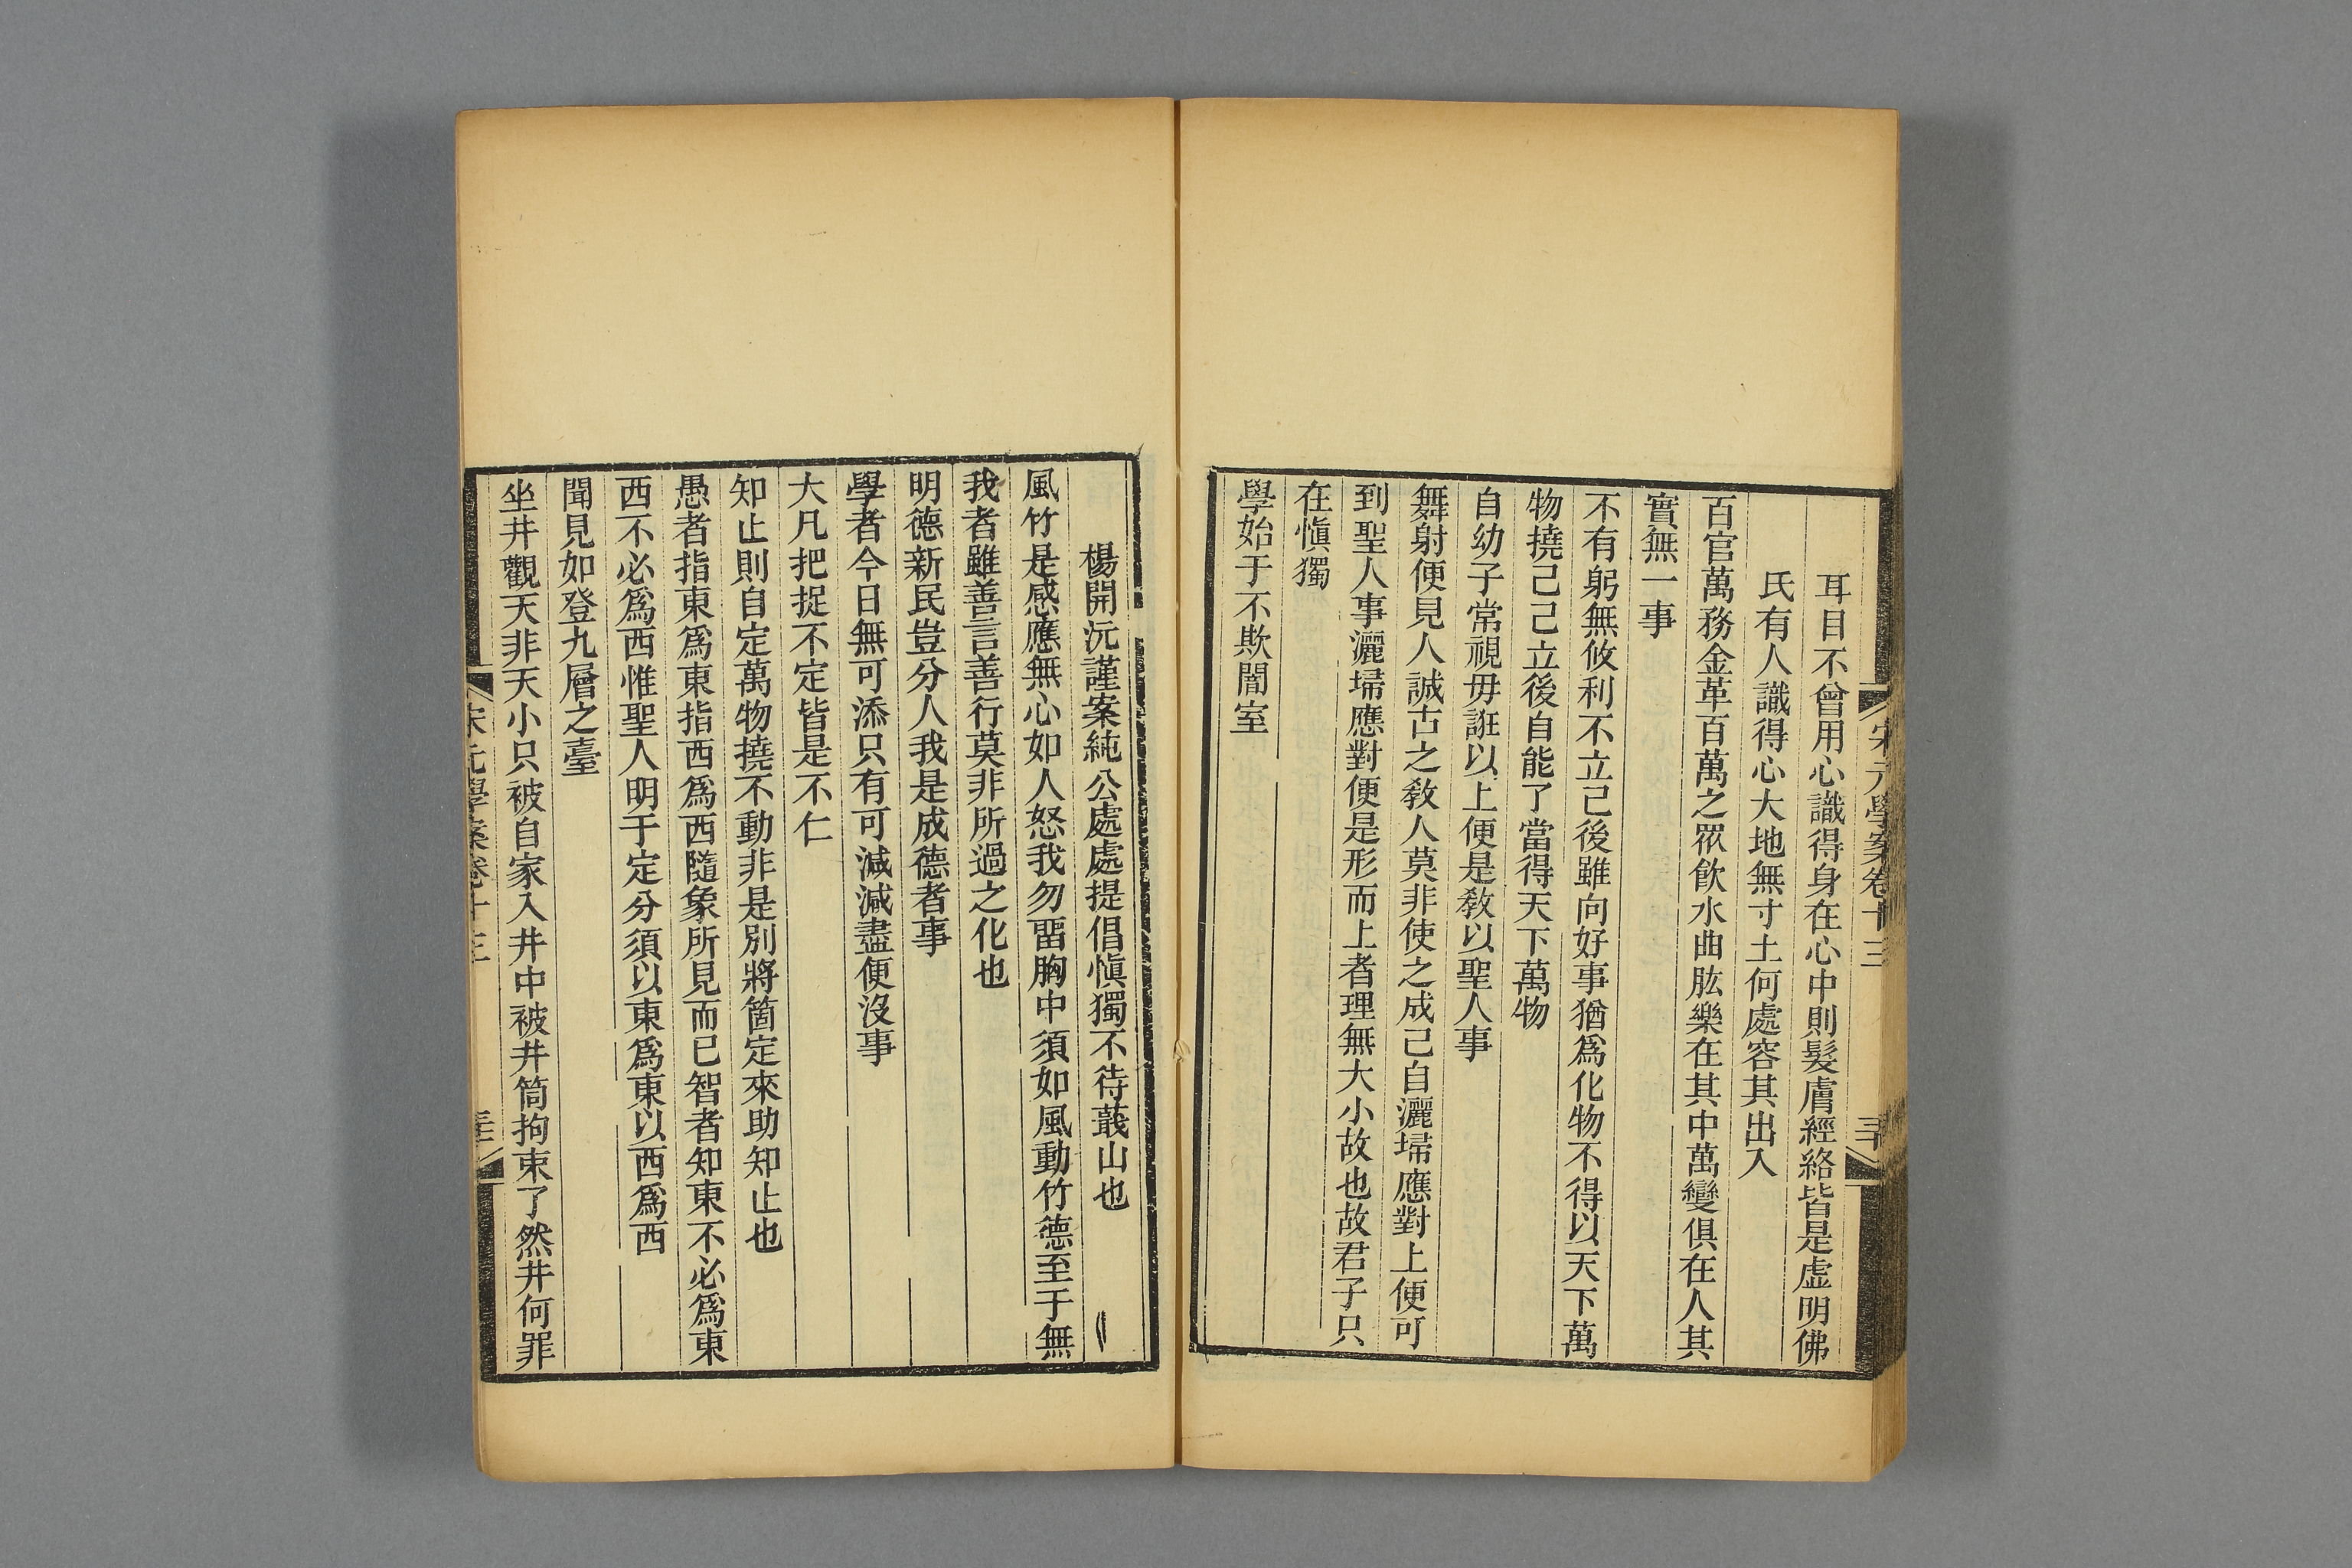 宋元學案卷十三
耳目不曾用心識得身在心中則髮膚經絡皆是虛明佛
氏有人識得心大地無寸土何處容其出入
百官萬務金革百萬之眾飲水曲肱樂在其中萬變俱在人其
實無一事
不有躬無攸利不立己後雖向好事猶爲化物不得以天下萬
物撓己己立後自能了當得天下萬物
自幼子常視毋誑以上便是敎以聖人事
舞射便見人誠古之敎人莫非使之成己自灑埽應對上便可
到聖人事灑埽應對便是形而上者理無大小故也故君子只
在愼獨
學始于不欺闇室
楊開沅謹案純公處處提倡愼獨不待蕺山也
風竹是感應無心如人怒我勿畱胸中須如風動竹德至于無
我者雖善言善行莫非所過之化也
明德新民豈分人我是成德者事
學者今日無可添只有可減減盡便沒事
大凡把捉不定皆是不仁
知止則自定萬物撓不動非是別將箇定來助知止也
愚者指東爲東指西爲西隨象所見而已智者知東不必爲東
西不必爲西惟聖人明于定分須以東爲東以西爲西
聞見如登九層之臺
坐井觀天非天小只被自家入井中被井筒拘束了然井何罪
宋元學案卷十三